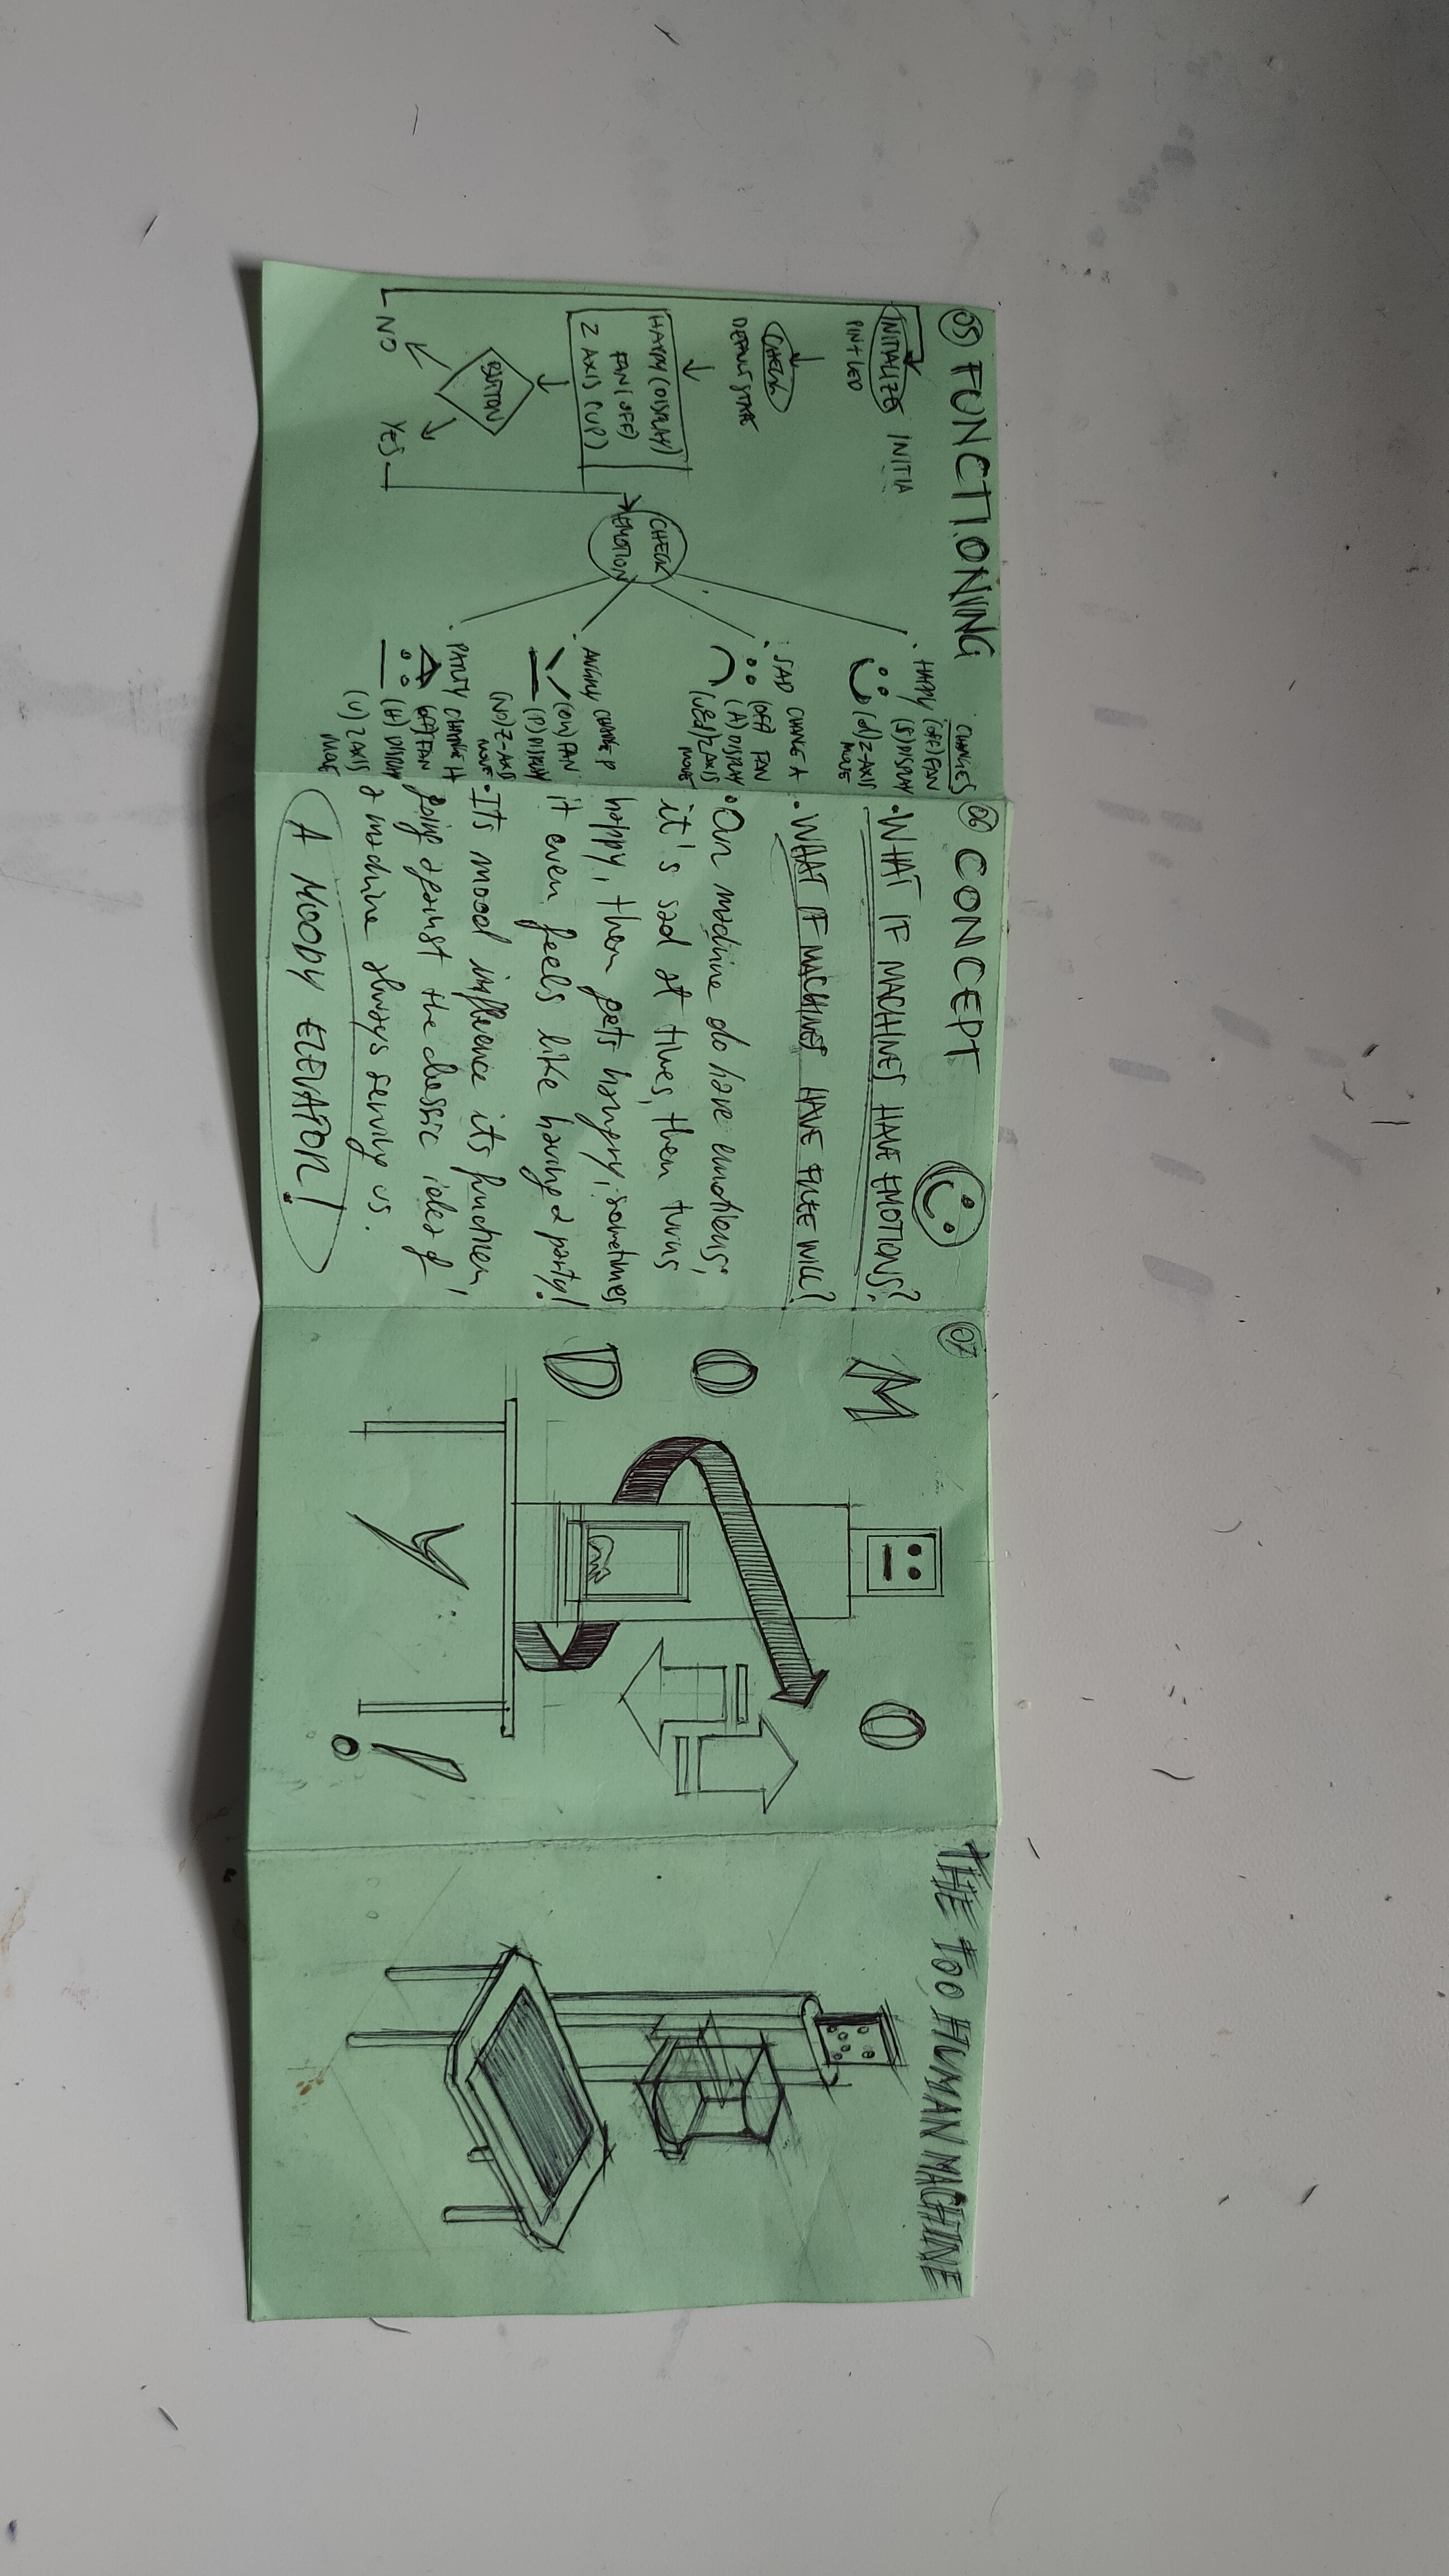 05 FUNCTIONING
INITIALIZE INITIA
PIN+LED
CHECK
DEFAULT STATE
HAPPY (DISPLAY)
FAN (OFF)
Z AXIS (UP)
BUTTON
NO
YES
CHECK
EMOTION
CHANGES
HAPPY
(OFF) FAN
(S) DISPLAY
(d) Z-AXIS
MOVE
SAD CHANGE A
(OFF) FAN
(A) DISPLAY
Z AXIS
MOVE
ANGRY CHANGE P
(ON) FAN
(P) DISPLAY
(NO) Z-AXIS
MOVE
PARTY CHANGE H
(OFF) FAN
(H) DISPLAY
(U) Z AXIS
MOVE
06 CONCEPT
• WHAT IF MACHINES HAVE EMOTIONS?
• WHAT IF MACHINES HAVE FREE WILL?
• Our machine do have emotions,
it's sad at times, then turns
happy, then gets hangry, sometimes
it even feels like having a party!
• Its mood influence its function,
going against the classic idea of
a machine always serving us.
A MOODY ELEVATOR!
07
M
O O
D
Y !
THE TOO HUMAN MACHINE